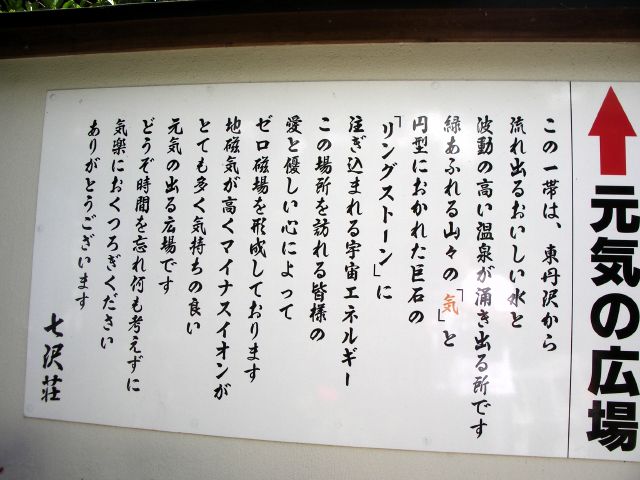 元気の広場
この一帯は、東丹沢から
流れ出るおいしい水と
波動の高い温泉が涌き出る所です
緑あふれる山々の「気」と
円型におかれた巨石の
「リングストーン」に
注ぎ込まれる宇宙エネルギー
この場所を訪れる皆様の
愛と優しい心によって
ゼロ磁場を形成しております
地磁気が高くマイナスイオンが
とても多く気持ちの良い
元気の出る広場です
どうぞ時間を忘れ何も考えずに
気楽におくつろぎください
ありがとうございます
七沢荘